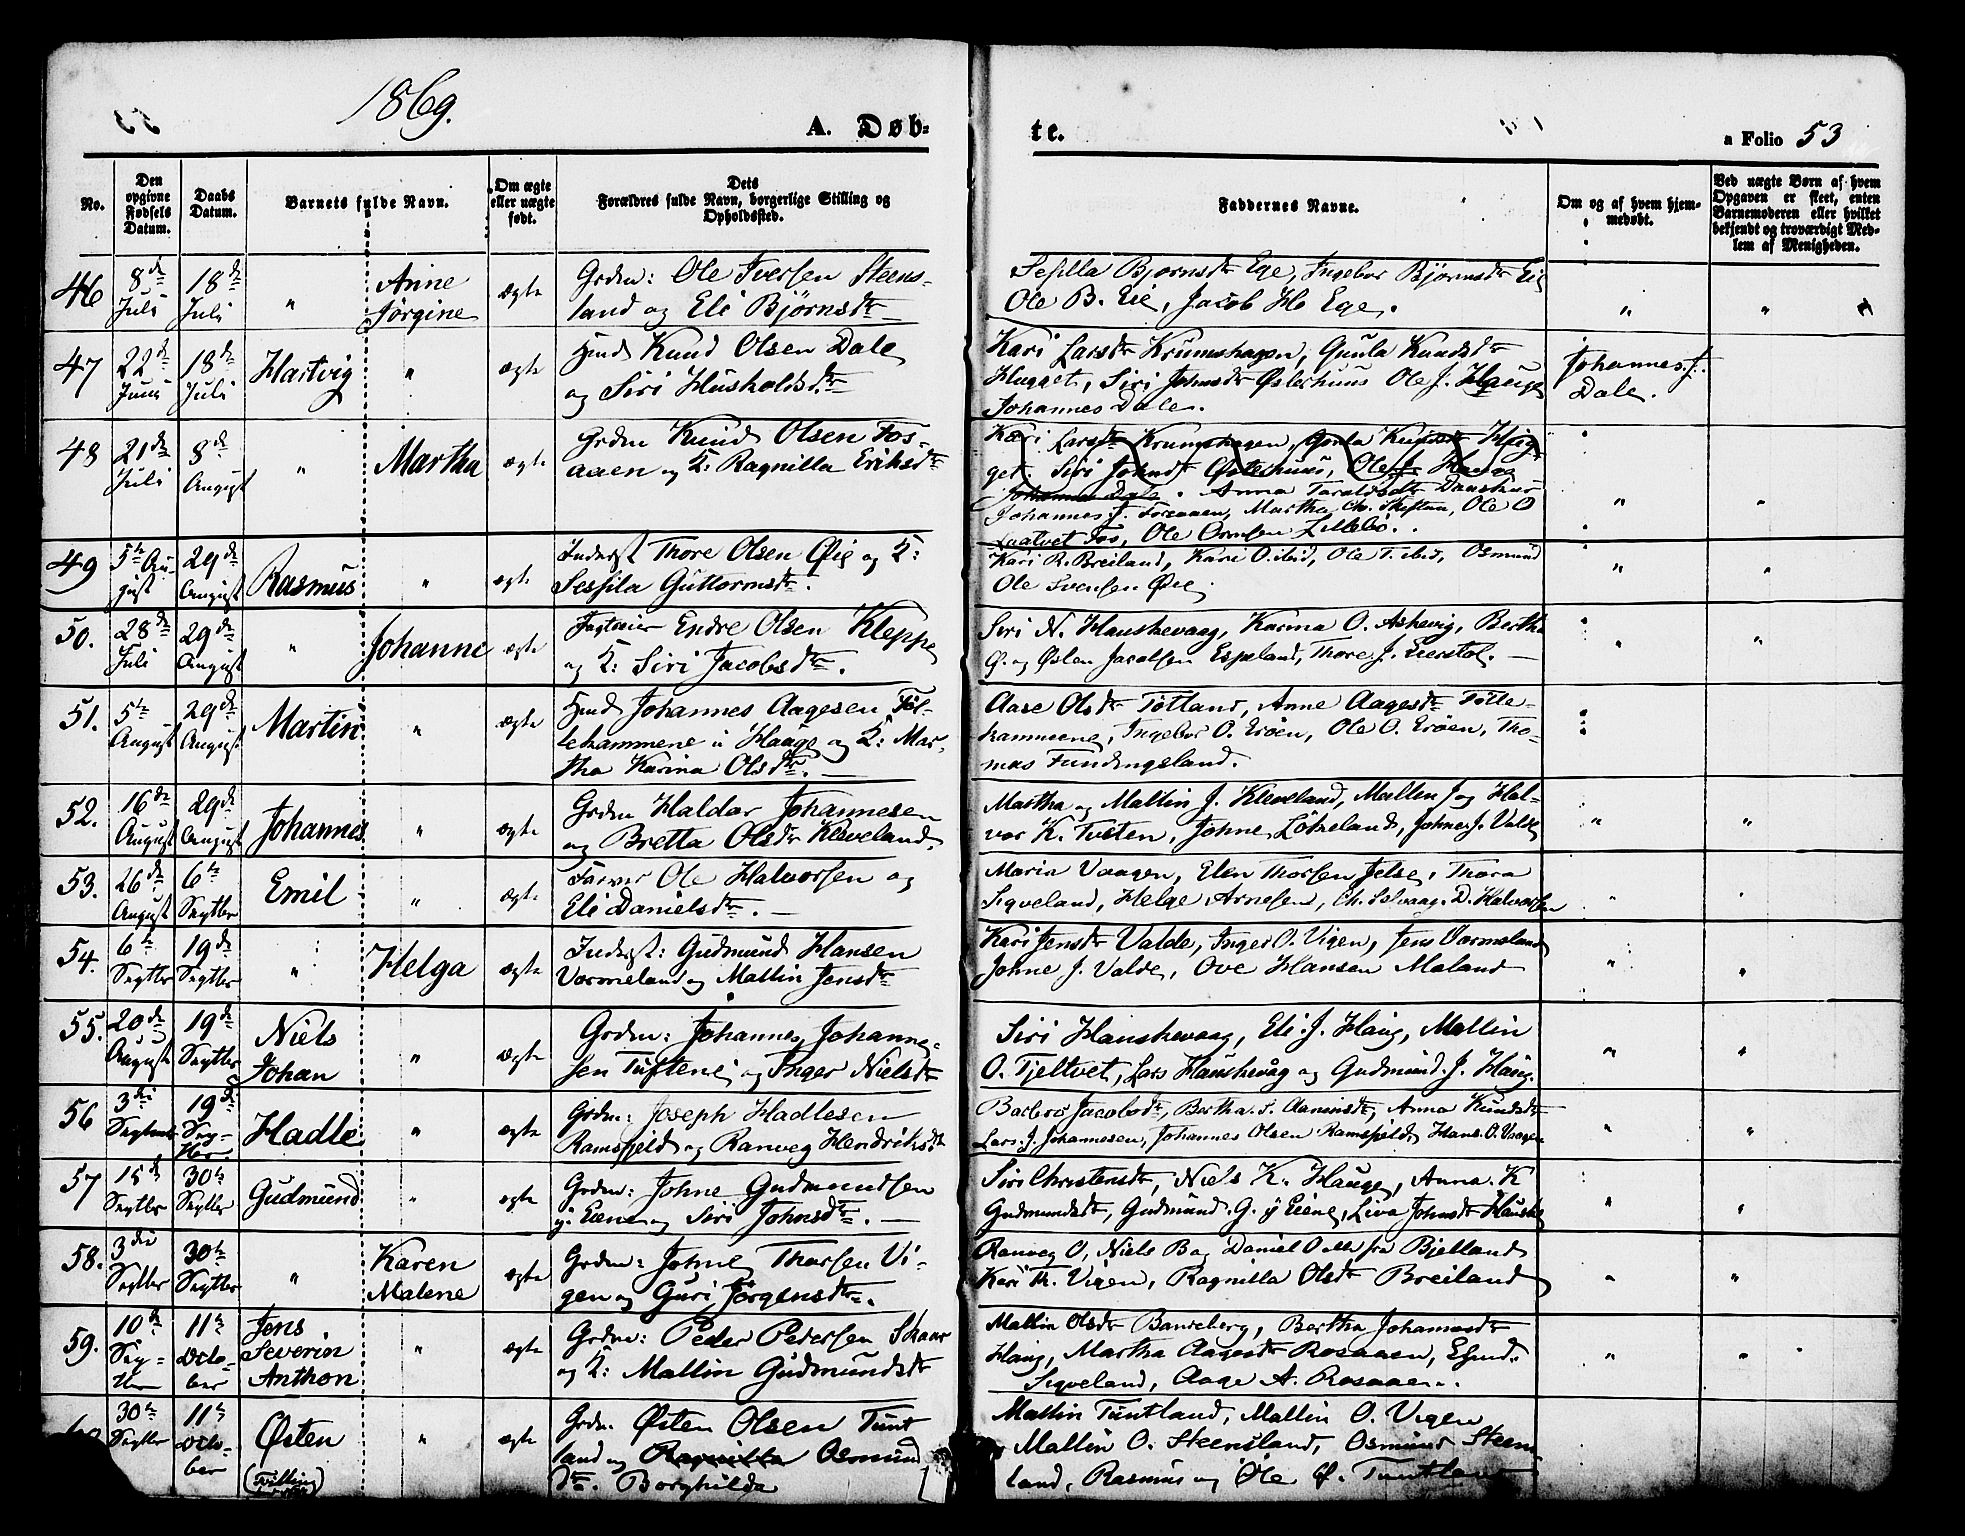 1869.
A. Døb-
te.
a Folio 53
No.
Den opgivne Fødsels Datum.
Daabs Datum.
Barnets fulde Navn.
Om ægte eller uægte født.
Dets Forældres fulde Navn, borgerlige Stilling og Opholdssted.
Faddernes Navne.
Om og af hvem hjemmedøbt.
Ved uægte Børn af hvem Opgaven er skeet, enten Barnemoderen eller hvilket bekjendt og troværdigt Medlem af Menigheden.
46 8de Juli 18de Juli " Anne Jørgine ægte
Grdm: Ole Iversen Steens-
land og Eli Bjørnsdtr
Sessilla Bjørnsdtr Ege, Ingebor Bjørnsdtr Eie
Ole B. Eie, Jacob H Ege.
47 22de Juni 18de Juli Hartvig " ægte
Hmd Knud Olsen Dale
og Siri Husholdsdtr.
Kari Larsdtr Krumshagen, Gunla Knudsdtr
Hugget, Siri Johnsdtr Østerhuus Ole J. Hauge
Johannes Dale.
Johannes J. Dale.
48 21de Juli 8de August " Martha ægte
Grdm Knud Olsen Fos-
aaen og K: Ragnilla Eriksdtr
Kari Larsdtr Krumshagen, Gunla Knudsdtr Hug-
get. Siri Johnsdtr Østerhuus, Ole J. Hauge
Johannes Dale. Anna Taraldsdtr
Johannes J. Fosaaen, Martha Ch. Ole O
Fos, Ole Ormsen Lillebø.
49 5te August 29de August Rasmus " ægte
Inderst Thore Olsen Øie og K:
Sessila Guttormsdtr.
Kari R. Breiland, Kari O. ibid, Ole T. ibid, Osmund
Ole Svensen Øie
50. 28de Juli 29de August " Johanne ægte
Endre Olsen Kleppe
og K: Siri Jacobsdtr.
Siri N. Hauskevaag, Karina O. Askevig, Bertha
Ø. og Østen Jacobsen Espeland, Thore J. Eierstol.
51. 5te August 29de August Martin " ægte
Hmd Johannes Aagesen Føl-
lekammene i Hauge og K: Mar-
tha Karina Olsdtr.
Aase Olsdtr Totland, Anne Aagesdtr Følle-
kammene, Ingebor O. Erøen, Ole O. Erøen, Tho-
mas Fundingsland.
52. 16de August 29de August Johannes " ægte
Grdm Haldor Johannesen
og Bretta Olsdtr Kleveland.
Martha og Mallin J. Kleveland, Mallin J og Hal-
vor K. Tveten, Johne Løkeland, Johne J. Valde
53. 26de August 6te Septbr Emil " ægte
Farver Ole Halvorsen og
Eli Danielsdtr.
Maria Vaagen, Elen Thorsen Jelse, Thora
Sigveland, Helge Arnesen, Ch. Selvaag. D. Halvorsen
54. 6te Septbr 19de Septbr " Helga ægte
Inderst: Gudmund Hansen
Vormeland og Mallin Jensdtr
Kari Jensdtr Valde, Inger O. Vigen, Jens Vormeland
Johne J. Valde, Ove Hansen Maland
55. 20de August 19de Septbr Niels Johan " ægte
Grdm: Johannes Johanne-
sen Tuftene og Inger Nielsdtr
Siri Hauskevaag, Eli J. Haug, Mallin
O. Tjeltvet, Lars Hauskevåg og Gudmund J. Haug.
56 3die Septmb 19de Septbr Hadle " ægte
Grdm: Joseph Hadlesen
Ramsfjeld og Ranveg Hendriksdtr
Barbro Jacobsdtr, Bertha S. Aanensdtr, Anna Knudsdtr
Lars J. Johannesen, Johannes Olsen Ramsfjeld, Hans O. Vaagen
57 15de Septbr 30te Septbr Gudmund " ægte
Grdm: Johne Gudmundsen
y. Eiene og Siri Johnsdtr.
Siri Christensdtr, Niels K. Hauge, Anna K
Gudmundsdtr, Gudmund G. y Eiene, Liva Johnsdtr Hauske
58. 3die Septbr 30te Septbr " Karen Malene ægte
Grdm: Johne Thorsen Vi-
gen og Guri Jörgensdtr.
Ranveg O, Niels B og Daniel O alle fra Bjelland
Kari Th. Vigen, Ragnilla Olsdtr Breiland
59. 10de Septbr 11te October Jens Severin Anthon " ægte
Grdm: Peder Pedersen Skaar
og K: Mallin Gudmundsdtr
Mallin Olsdtr Banseberg, Bertha Johannesdtr
Haug, Martha Aagesdtr Rosaaen, Esund
Sigveland, Aage A. Rosaaen.
30te Septbr 11te October Østen (Tvilling) " ægte
Grdm: Østen Olsen Tunt
land og Ragnilla Osmund
dtr. Borghilda
Mallin Tuntland, Mallin O. Vigen
Mallin O. Steensland, Osmund Steens
land, Rasmus og Ole Ø. Tuntland